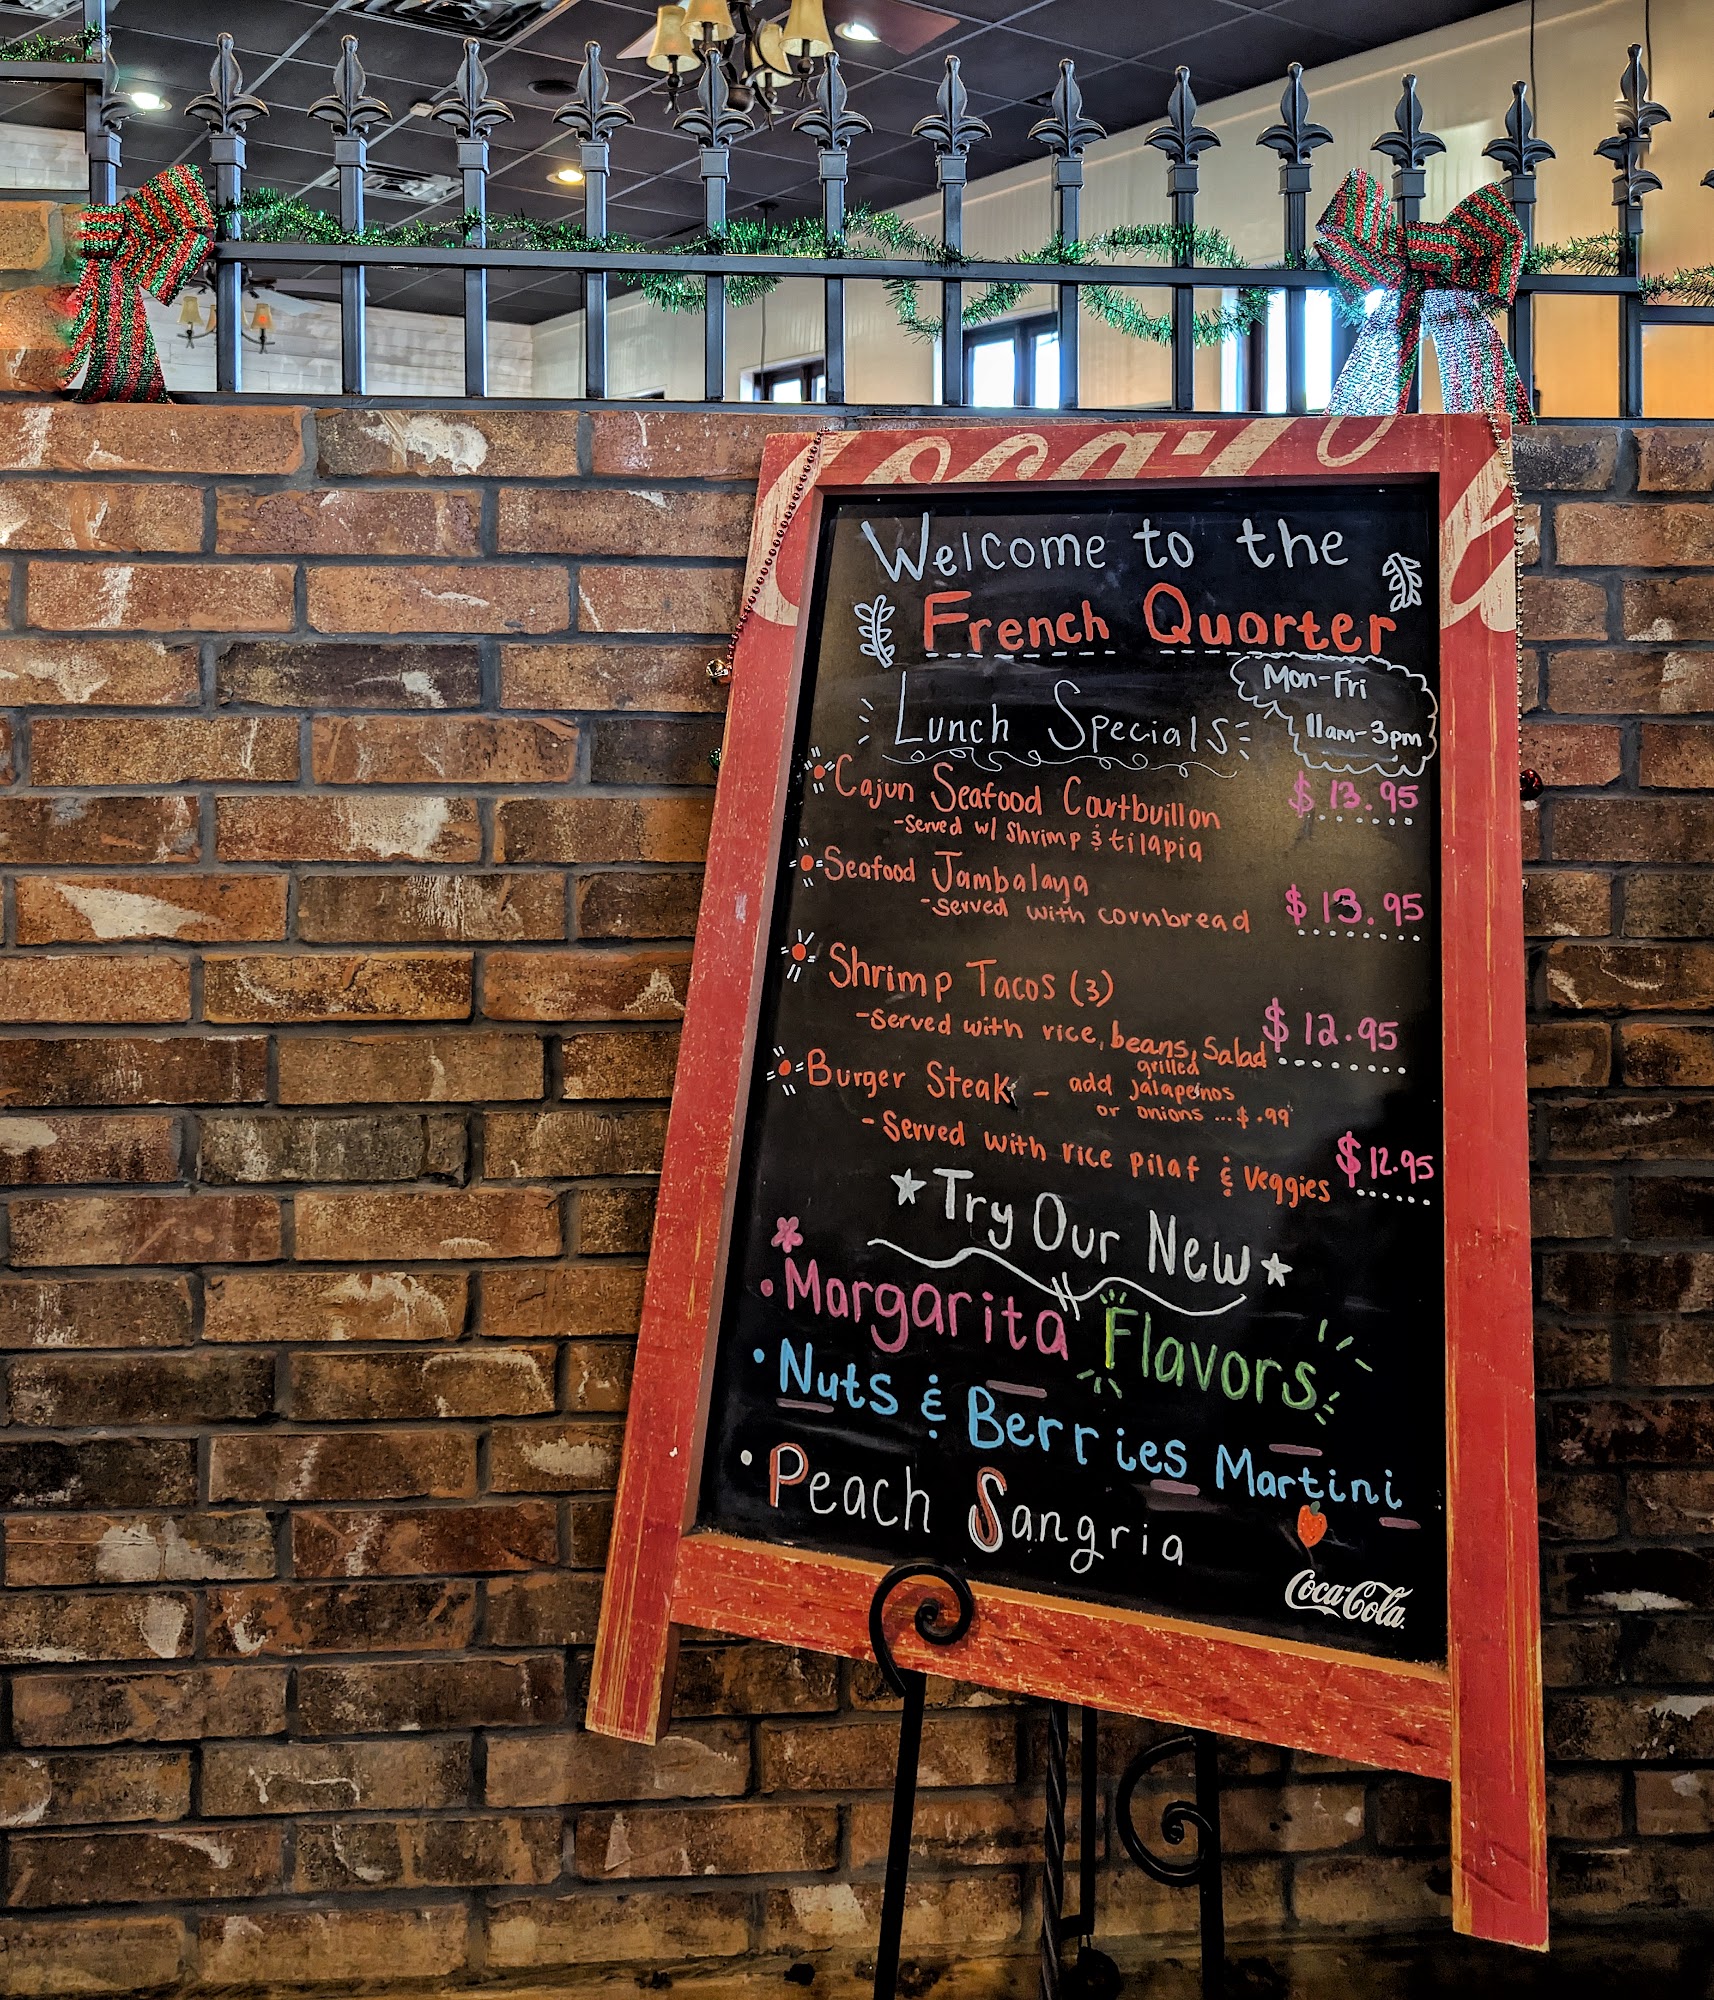 Coca-Cola
Welcome to the
French Quarter
Lunch Specials
Mon-Fri
11am-3pm
Cajun Seafood Courtbuillon $13.95
-Served w/ Shrimp & tilapia
Seafood Jambalaya
-Served with cornbread $13.95
Shrimp Tacos (3)
-Served with rice, beans, Salad $12.95
Burger Steak - add grilled jalapenos
or onions ...$.99
-Served with rice pilaf & veggies $12.95
Try Our New
• Margarita Flavors
• Nuts & Berries Martini
• Peach Sangria
Coca-Cola